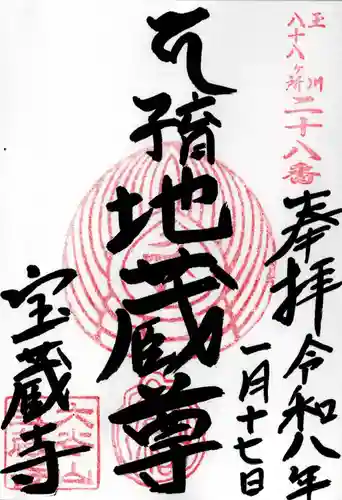 玉川
八十八ヶ所二十八番
奉拝
令和八年
一月十七日
子育地蔵尊
宝蔵寺